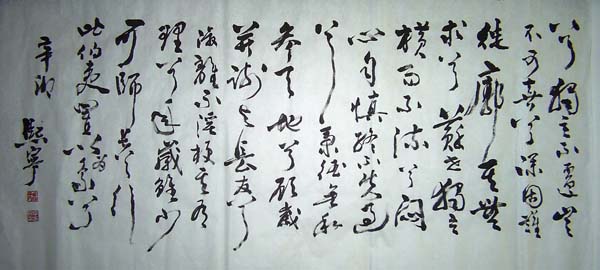 兮獨立不遷豈
不可喜兮深固難
徙廓其無
求兮蘇世獨立
橫而不流兮閉
心自慎終不失過
兮秉德無私
參天地兮願歲
并謝與長友兮
淑離不淫梗其有
理兮年歲雖少
可師長兮行
比伯夷置以為像兮
辛卯 熙寧